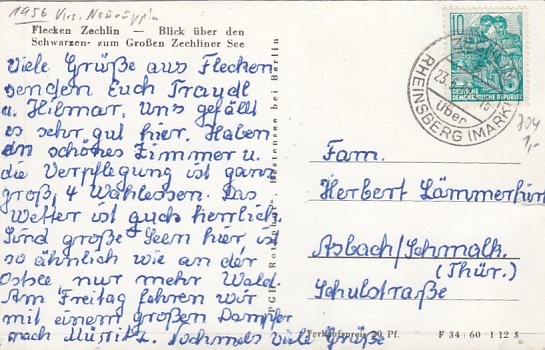 1956 Krs. Neuruppin
Flecken Zechlin — Blick über den
Schwarzen- zum Großen Zechliner See
Viele Grüße aus Flecken
senden Euch Traudl
u. Hilmar. Uns gefällt
es sehr gut hier. Haben
ein schönes Zimmer u.
die Verpflegung ist ganz
groß, 4 Wahlessen. Das
Wetter ist auch herrlich.
Sind große Seen hier ist
so ähnlich wie an der
Ostsee nur mehr Wald.
Am Freitag fahren wir
mit einem großen Dampfer
nach Müritz. Nochmals viele Grüße
bei Berlin
10
DEUTSCHE
DEMOKRATISCHE REPUBLIK
23.
über
RHEINSBERG (MARK)
704
1,-
Fam.
Herbert Lämmerhirt
Asbach/Schmalk.
(Thür.)
Schulstraße
Verkaufspreis 20 Pf. F 34 : 60 I 12 5